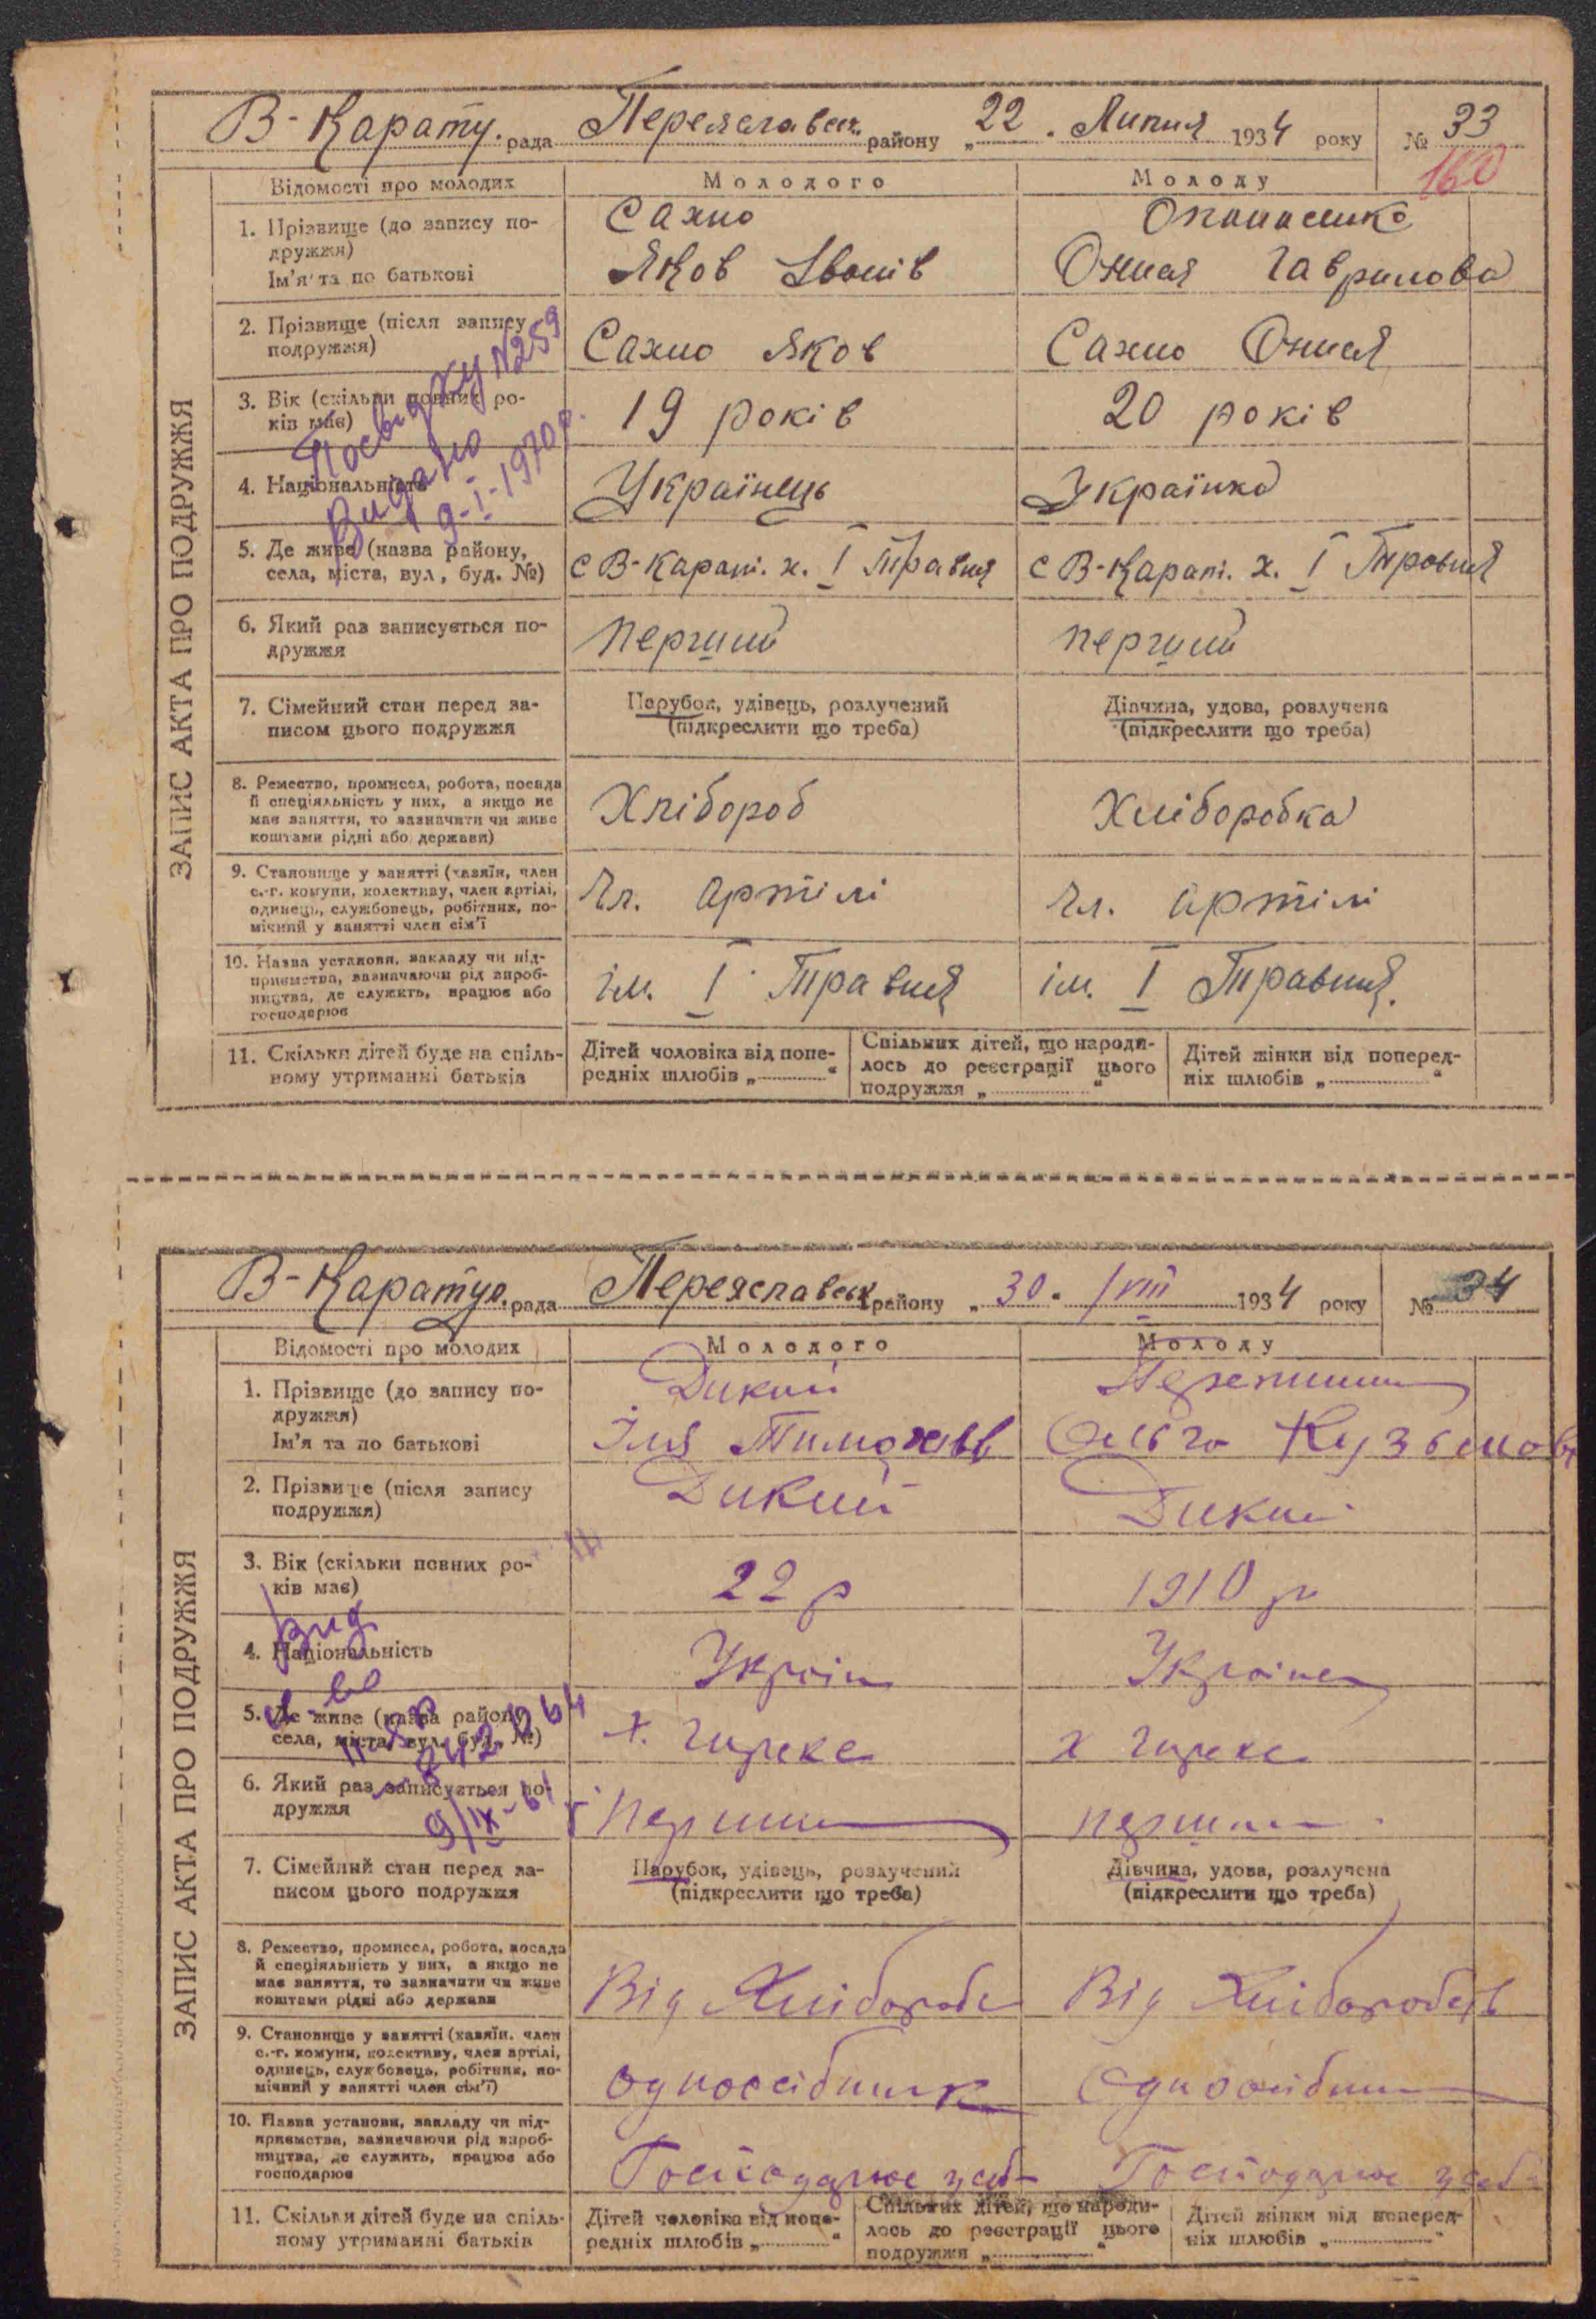 В-Карату. рада Переяславськ. району „22. Липня 1934 року № 33
160
Відомості про молодих
Молодого
Молоду
1. Прізвище (до запису по-
дружжя)
Ім'я та по батькові
Сахно
Яков Іванів
Опанасенко
Онися Гаврилова
2. Прізвище (після запису
подружжя)
Сахно Яков
Сахно Онися
3. Вік (скільки повних ро-
ків має)
19 років
20 років
4. Національність
Українець
Українка
Посвідку №259
Видано
9-I-1970р.
5. Де живе (назва району,
села, міста, вул, буд. №)
с В-Карат. х. I Травня
с В-Карат. х. I Травня
6. Який раз записується по-
дружжя
перший
перший
7. Сімейний стан перед за-
писом цього подружжя
Парубок, удівець, розлучений
(підкреслити що треба)
Дівчина, удова, розлучена
(підкреслити що треба)
8. Ремество, промисел, робота, посада
й спеціяльність у них, а якщо не
має заняття, то зазначити чи живе
коштами рідні або держави)
Хлібороб
Хліборобка
9. Становище у занятті (хазяїн, член
с.-г. комуни, колективу, член артілі,
одинець, службовець, робітник, по-
мічний у занятті член сім'ї
Чл. артілі
Чл. артілі
10. Назва установи, закладу чи під-
приємства, зазначаючи рід вироб-
ництва, де служить, працює або
господарює
ім. I Травня
ім. I Травня.
11. Скільки дітей буде на спіль-
ному утриманні батьків
Дітей чоловіка від попе-
редніх шлюбів „ “
Спільних дітей, що народи-
лось до реєстрації цього
подружжя „ “
Дітей жінки від поперед-
ніх шлюбів „ “
ЗАПИС АКТА ПРО ПОДРУЖЖЯ
В-Каратул. рада Переяславськ району „30. /VIII 1934 року № 34
Відомості про молодих
Молодого
Молоду
1. Прізвище (до запису по-
дружжя)
Ім'я та по батькові
Дикий
Ілля
Ольга Кузьмов
2. Прізвище (після запису
подружжя)
Дикий
Дикий
3. Вік (скільки повних ро-
ків має)
22 р
1910 р
4. Національність
Україн
Україн
Вид
9/IX-61
5. Де живе (назва району,
села, міста, вул. буд. №)
х.
х
6. Який раз записується по-
дружжя
перши
перши
7. Сімейний стан перед за-
писом цього подружжя
Парубок, удівець, розлучений
(підкреслити що треба)
Дівчина, удова, розлучена
(підкреслити що треба)
8. Ремество, промисел, робота, посада
й спеціяльність у них, а якщо не
має заняття, то зазначити чи живе
коштами рідні або держави
Від Хлібороб
Від Хліборобст
9. Становище у занятті (хазяїн, член
с.-г. комуни, колективу, член артілі,
одинець, службовець, робітник, по-
мічний у занятті член сім'ї)
одноосібник
Одноосібни
10. Назва установи, закладу чи під-
приємства, зазначаючи рід вироб-
ництва, де служить, працює або
господарює
Господарює у себ
Господарює у себ
11. Скільки дітей буде на спіль-
ному утриманні батьків
Дітей чоловіка від попе-
редніх шлюбів „ “
Спільних дітей, що народи-
лось до реєстрації цього
подружжя „ “
Дітей жінки від поперед-
ніх шлюбів „ “
ЗАПИС АКТА ПРО ПОДРУЖЖЯ